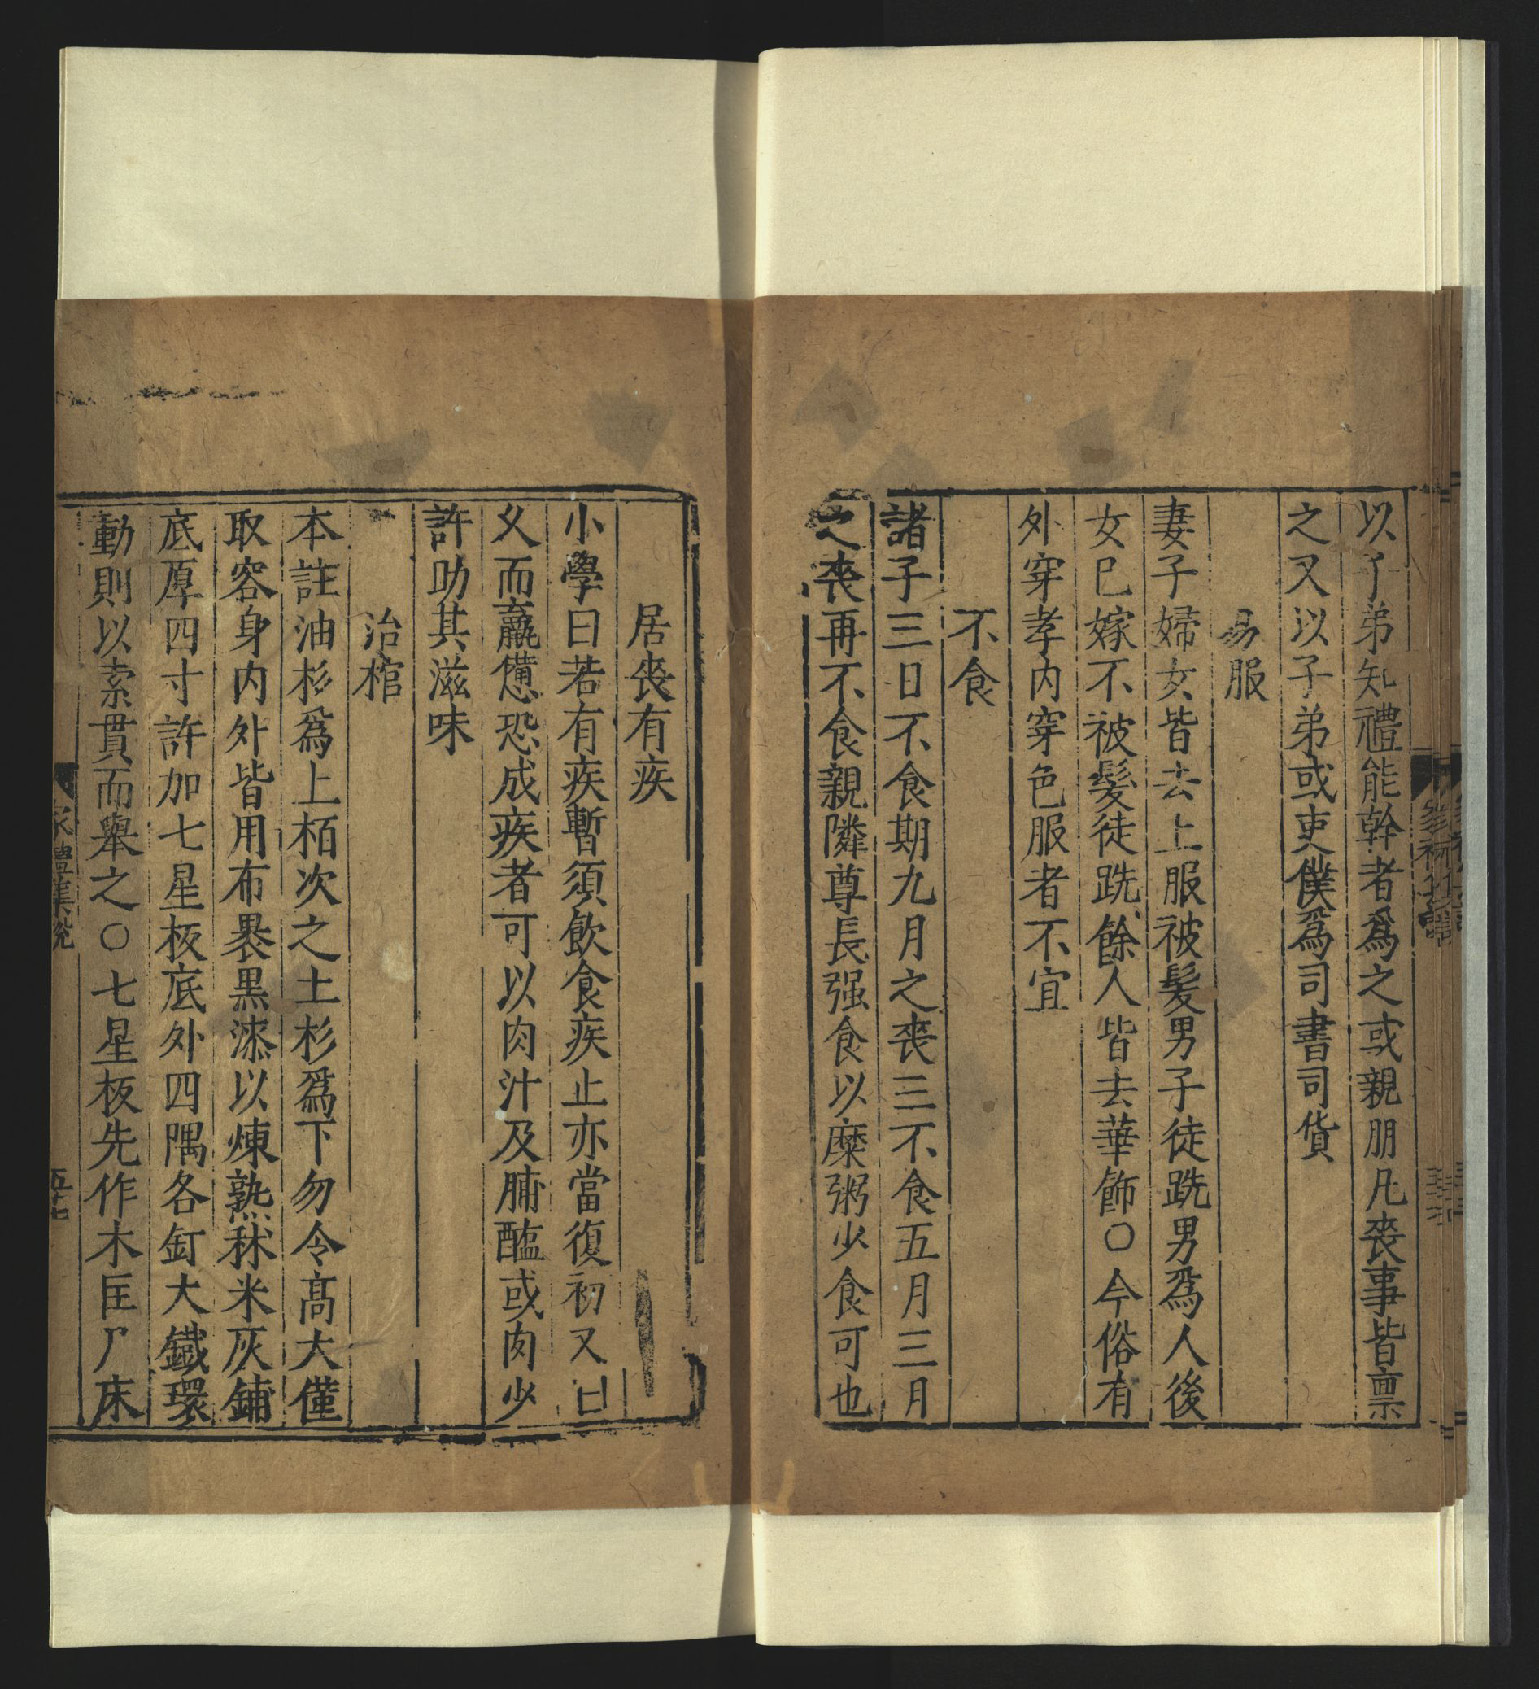 以子弟知禮能幹者爲之或親朋凡喪事皆禀
之又以子弟或吏僕爲司書司貨
易服
妻子婦女皆去上服被髮男子徒跣男爲人後
女已嫁不被髮徒跣餘人皆去華飾〇今俗有
外穿孝内穿色服者不宜
不食
諸子三日不食期九月之喪三不食五月三月
之喪再不食親隣尊長强食以糜粥少食可也
居喪有疾
小學曰若有疾暫須飲食疾止亦當復初又曰
父而羸憊恐成疾者可以肉汁及脯醢或肉少
許助其滋味
治棺
本註油杉爲上栢次之土杉爲下勿令髙大僅
取容身内外皆用布褁黒漆以煉熟秫米灰鋪
底厚四寸許加七星板底外四隅各釘大鐵環
動則以索貫而舉之〇七星板先作木匡厂床
家禮集說
五十七